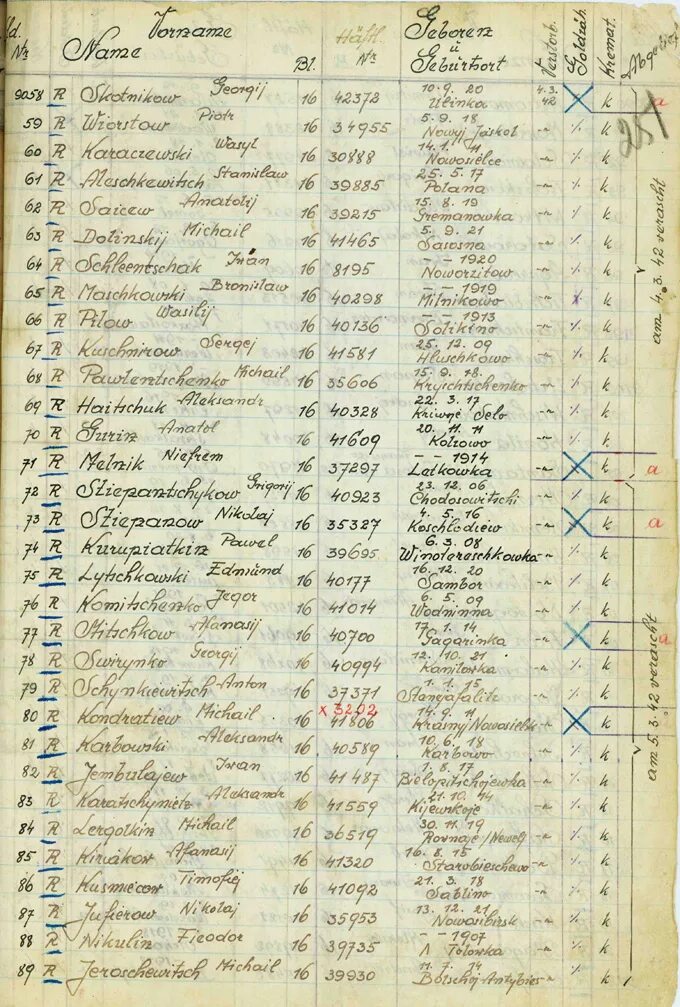 Lfd. Nr. Vorname Name Bl. Häftl. Nr. Geboren u Geburtsort Verstorb. Goldzäh. Kremat.
9058 R Skotnikow Georgij 16 42372 10.9.20 Ulinka 4.3.42 X k a
59 R Wiorstow Piotr 16 34955 5.9.18 Nowyj Joskol -"- ·/. k
60 R Karaczewski Wasyl 16 30888 14.1.11 Nowosielce -"- ·/. k
61 R Aleschkewitsch Stanislaw 16 39885 25.5.17 Polana -"- ·/. k
62 R Saicew Anatolij 16 39215 15.8.19 Gremanowka -"- ·/. k
63 R Dolinskij Michail 16 41465 5.9.21 Sarosna -"- ·/. k
64 R Schleentschak Iwan 16 8195 – – 1920 Noworzitow -"- ·/. k
65 R Maschkowski Bronislaw 16 40298 – – 1919 Milnikowo -"- ·/. k
66 R Pilow Wasilij 16 40136 – – 1913 Solikino -"- ·/. k
67 R Kuschnirow Sergej 16 41581 25.12.09 Hluschkowo -"- ·/. k
68 R Pawlentschenko Michail 16 35606 15.9.18. Kryschtschenko -"- ·/. k
69 R Haitschuk Aleksandr 16 40328 22.3.17 Kriwne Selo -"- ·/. k
70 R Gurin Anatol 16 41609 20.11.11 Kolzowo -"- ·/. k
71 R Melnik Niefrem 16 37297 – – 1914 Letkowka -"- X k a
72 R Stiepantschykow Grigorij 16 40923 23.12.06 Chodosowitschi -"- ·/. k
73 R Stiepanow Nikolaj 16 35327 4.5.16 Koschlodiew -"- X k a
74 R Kurupiatkin Pawel 16 39695 6.3.08 Winotereschkowka -"- ·/. k
75 R Lytschkowski Edmund 16 40177 16.12.20 Sambor -"- ·/. k
76 R Komitschenko Jegor 16 41014 6.5.09 Wodninna -"- ·/. k
77 R Stitschkow Afanasij 16 40700 17.1.14 Gagarinka -"- X k a
78 R Swirynko Georgij 16 40994 12.10.21 Kamilowka -"- ·/. k
79 R Schynkiewitsch Anton 16 37371 1.1.15 -"- ·/. k
x 3202
80 R Kondratiew Michail 16 41806 14.9.11 Krasny/Nowosielsk -"- X k
81 R Karbowski Aleksandr 16 40589 10.6.18 Karbowo -"- ·/. k
82 R Jembulajew Iwan 16 41487 1.8.17 Bielopitschojewka -"- ·/. k
83 R Karatschynietz Aleksandr 16 41559 21.10.14 Kijewskoje -"- ·/. k
84 R Lergotkin Michail 16 36519 30.11.19 Rownoje/Newelj -"- ·/. k
85 R Kiriakow Afanasij 16 41320 16.8.15 Starobieschewo -"- ·/. k
86 R Kusmiecow Timofiej 16 41092 21.3.18 Sablino -"- ·/. k
87 R Jufierow Nikolaj 16 35953 13.12.21 Nowosibirsk -"- ·/. k
88 R Nikulin Fieodor 16 39735 – – 1907 Tolowka -"- ·/. k
89 R Jeroschewitsch Michail 16 39930 11.7.14 Bolschoj Antybies -"- ·/. k
am 4.3.42 verascht
am 5.3.42 verascht